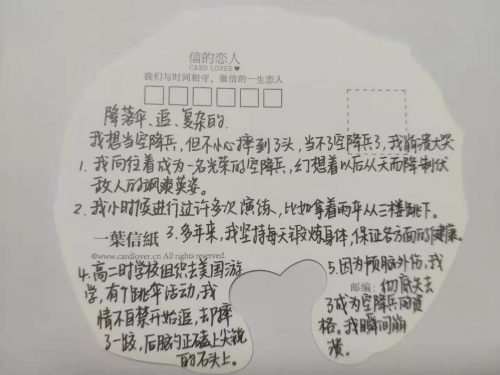 信的恋人
CARD LOVER
我们与时间相守，做信的一生恋人
降落伞、追、复杂的.
我想当空降兵，但不小心摔到了头，当不了空降兵了，我崩溃大哭
1. 我向往着成为一名光荣的空降兵，幻想着以后从天而降制伏
敌人的飒爽英姿。
2. 我小时候进行过许多次演练，比如拿着雨伞从三楼跳下。
一葉信紙 3. 多年来，我坚持每天锻炼身体，保证各方面的健康。
www.cardlover.cn All rights reserved
4. 高二时学校组织去美国游
学，有个跳伞活动，我
情不自禁开始追，却摔
了一跤，后脑勺正磕上尖锐
的石头上。
5. 因为颅脑外伤，我
邮编：彻底失去
了成为空降兵的资
格。我瞬间崩
溃。